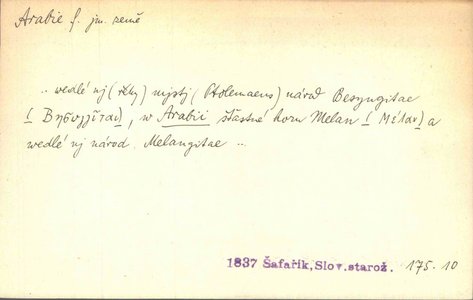 Arabie f. jm. země
.. wedlé nj (řeky) mjstj (Ptolemaeus) národ Besyngitae
[ Βησυγγῖται ], w Arabii šťastné horu Melan [ Μέλαν ] a
wedlé nj národ Melangitae ..
1837 Šafařík, Slov. starož. 175.10